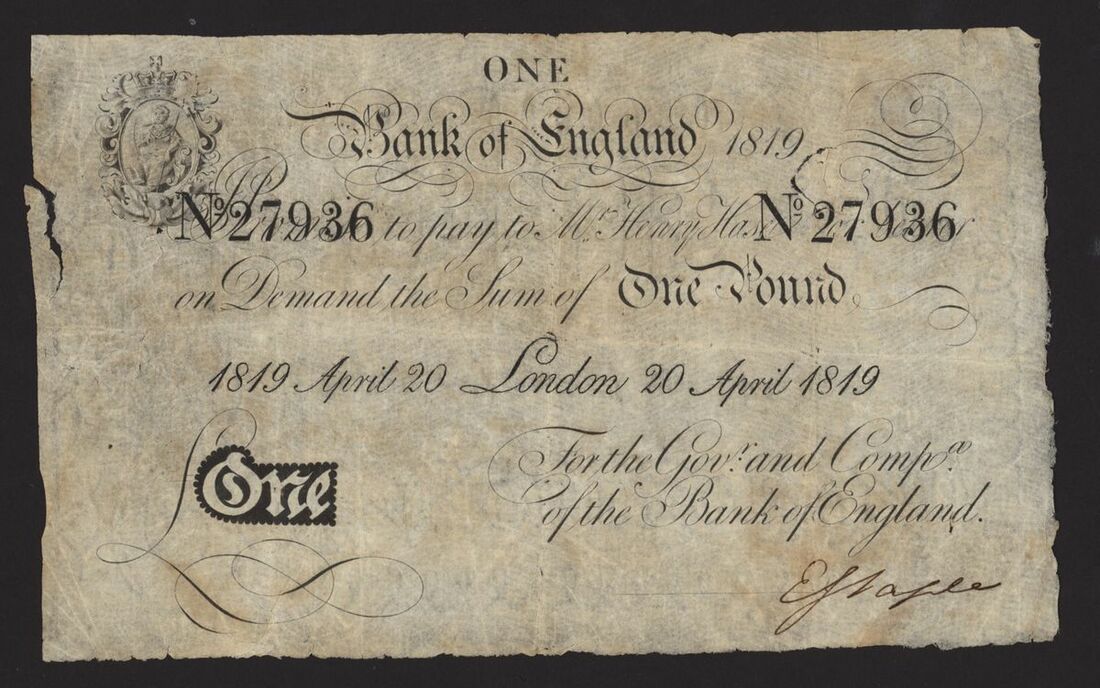 ONE
Bank of England 1819
No 27936 to pay to Mr. Henry Hase No 27936
on Demand the Sum of One Pound
1819 April 20 London 20 April 1819
For the Govr. and Compa.
One
of the Bank of England.